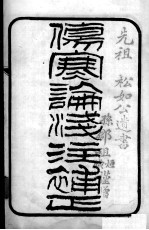 先祖 松如公遺書
傷寒論淺注補正
孫鄧